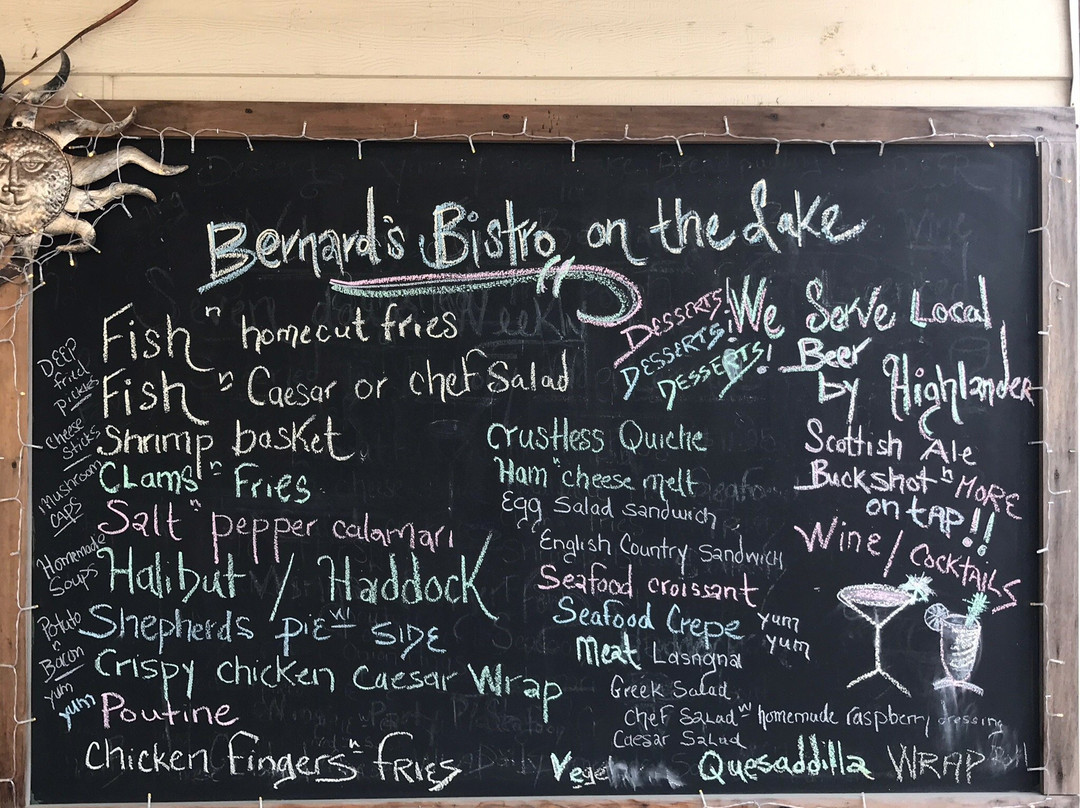 Bernard's Bistro on the Lake
Fish "n" homecut fries
Fish "n" Caesar or chef Salad
Shrimp basket
Clams "n" Fries
Salt "n" pepper calamari
Halibut / Haddock
Shepherds pie w/ SIDE
Crispy chicken Caesar Wrap
Poutine
Chicken Fingers "n" fries
DEEP
fried
pickles
Cheese
Sticks
Mushroom
CAPS
Homemade
Soups
Potato
n
Bacon
yum
yum
DESSERTS!
DESSERTS!
DESSERTS!
Crustless Quiche
Ham "n" cheese melt
Egg Salad sandwich
English Country Sandwich
Seafood croissant
Seafood Crepe yum
yum
Meat Lasagna
Greek Salad
Chef Salad w/ homemade raspberry dressing
Caesar Salad
Quesaddilla WRAP
We Serve Local
Beer
by Highlander
Scottish Ale
Buckshot "n" MORE
on TAP!!
Wine / COCKTAILS